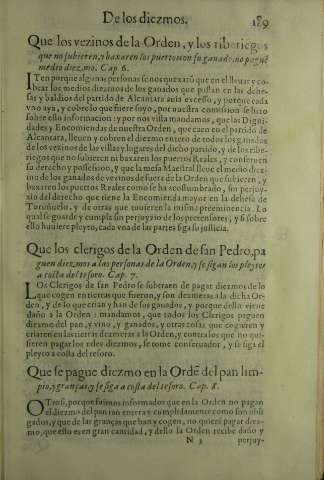 De los diezmos. 189
Que los vezinos de la Orden, y los riberiegos
que no subieren, y baxaren los puertos con su ganado, no paguē
medio diezmo. Cap. 6.
ITen porque algunas personas se nos quexarō que en el lleuar y co-
brar los medios diezmos de los ganados que pastan en las dehe-
sas y baldios del partido de Alcantara auia excesso, y porque cada
vno aya, y cobre lo que fuere suyo, por nuestra comission se hizo
sobre ello informacion: y por nos vista mandamos, que las Digni-
dades y Encomiendas de nuestra Orden, que caen en el partido de
Alcantara, lleuen y cobren el diezmo entero de todos los ganados
de los vezinos de las villas y lugares del dicho partido, y de los ribe-
riegos que no subieren ni baxaren los puertos Reales, y conseruen
su derecho y possession, y que la mesa Maestral lleue el medio diez-
mo de los ganados de vezinos de fuera de la Orden que subieren, y
baxaren los puertos Reales como se ha acostumbrado, sin perjuy-
zio del derecho que tiene la Encomienda mayor en la dehesa de
Toruñuelo, y de otras que tuuieren la misma preeminencia. Lo
qual se guarde y cumpla sin perjuyzio de los pretensores, y si sobre
ello huuiere pleyto, cada vna de las partes siga su justicia.
Que los clerigos de la Orden de san Pedro, pa
guen diezmos a las personas de la Orden, y se sigan los pleytos
a costa del tesoro. Cap. 7.
LOs Clerigos de san Pedro se subtraen de pagar diezmos de lo
que cogen en tierras que fueron, y son dezmeras a la dicha Or-
den, y de lo que crian y han de sus ganados, y porque desto viene
daño a la Orden: mandamos, que todos los Clerigos paguen
diezmo del pan, y vino, y ganados, y otras cosas que cogieren y
criaren en las tierras dezmeras a la Orden, y contra los que no qui-
sieren pagar los tales diezmos, se tome conseruador, y se siga el
pleyto a costa del tesoro.
Que se pague diezmo en la Ordē del pan lim-
pio, y granças, y se siga a costa del tesoro. Cap. 8.
OTrosi, porque fuimos informados que en la Orden no pagan
el diezmo del pan tan entera y cumplidamente como son obli
gados, y que de las granças que han y cogen, no quierē pagar diez-
mo, que esto es en gran cantidad, y dello la Orden recibe daño y
N 3 perjuy-